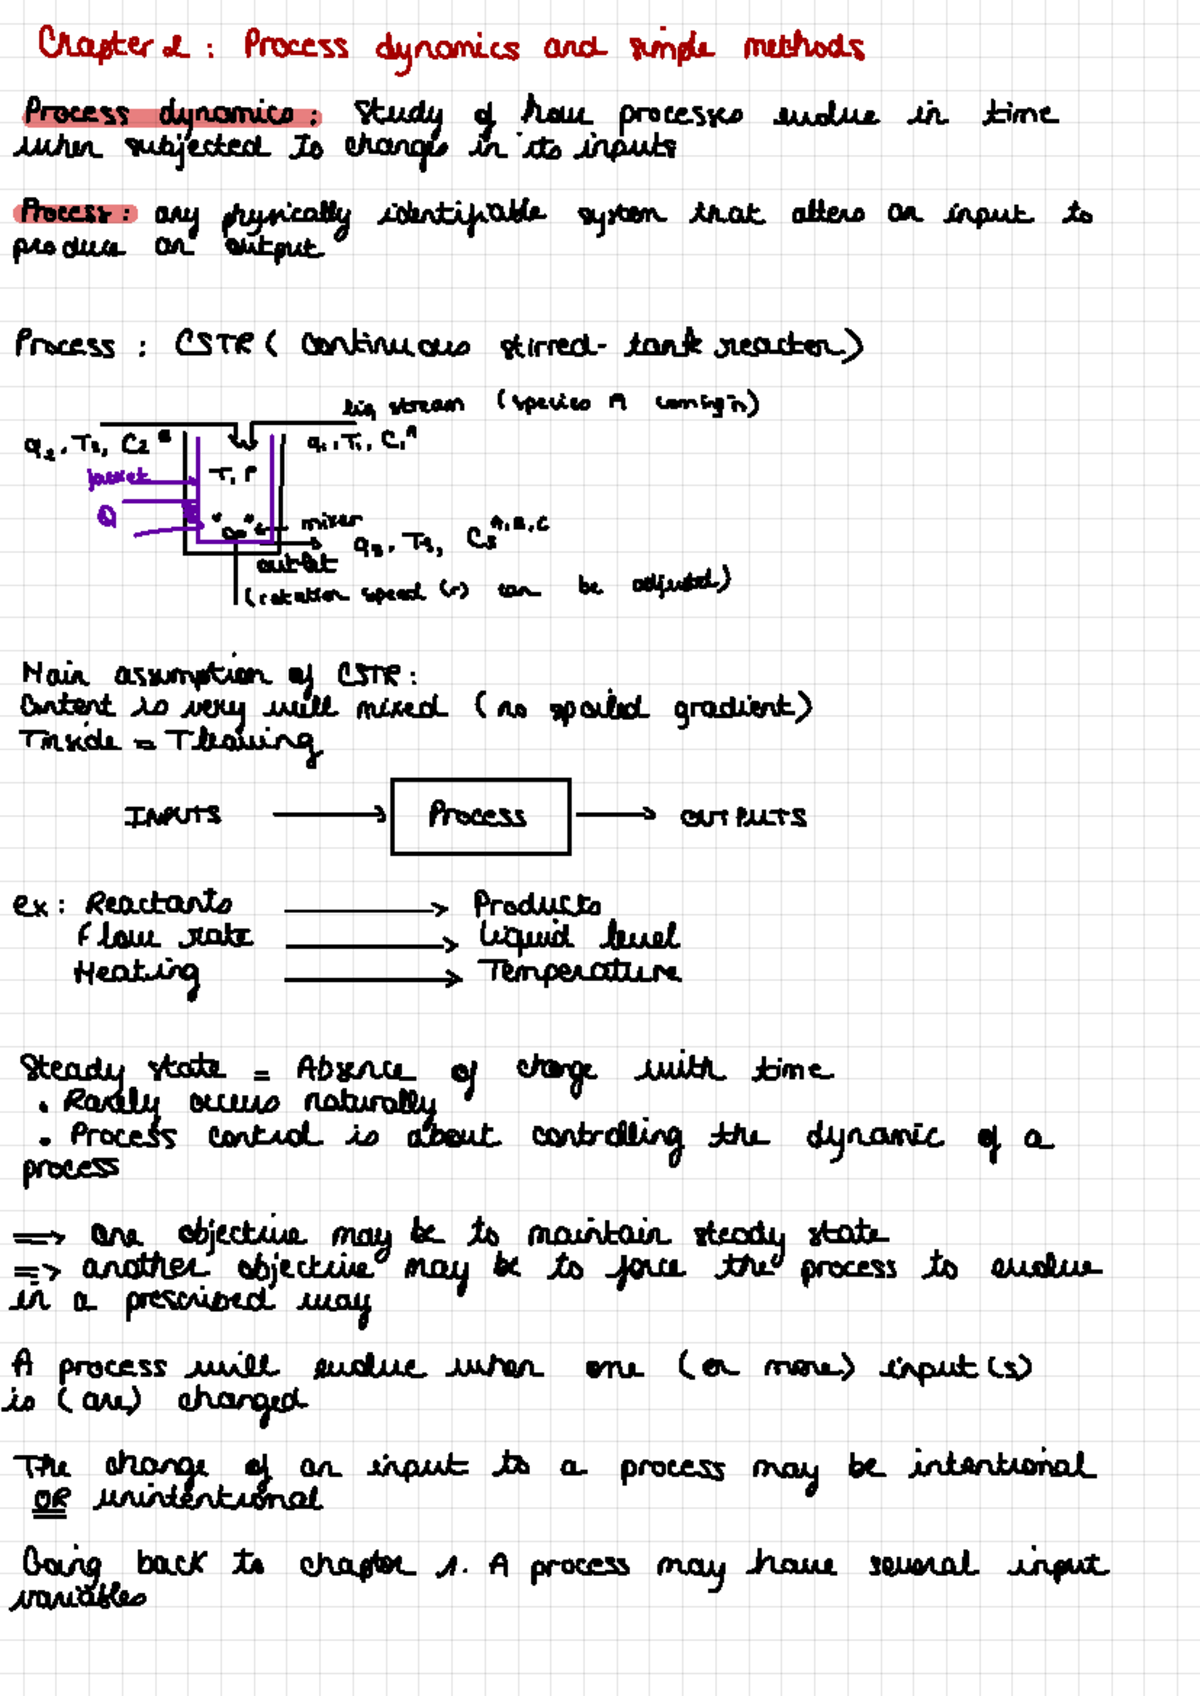 Chapter 2 : Process dynamics and simple methods
Process dynamics : Study of how processes evolve in time
when subjected to changes in its inputs
Process : any physically identifiable system that alters an input to
produce an output
Process : CSTR ( Continuous stirred-tank reactor )
liq stream (species A coming in)
q2, T2, C2 B
q1, T1, C1 A
jacket
T, P
Q
mixer
q3, T3, C3 A, B, C
outlet
(rotation speed (r) can be adjusted)
Main assumption of CSTR :
Content is very well mixed ( no gradient )
Tinside = Tleaving
INPUTS → Process → OUTPUTS
ex : Reactants → Products
Flow rate → Liquid level
Heating → Temperature
Steady state = Absence of change with time
• Rarely occurs naturally
• Process control is about controlling the dynamic of a
process
=> one objective may be to maintain steady state
=> another objective may be to force the process to evolve
in a prescribed way
A process will evolve when one (or more) input(s)
is (are) changed
The change of an input to a process may be intentional
OR unintentional
Going back to chapter 1. A process may have several input
variables